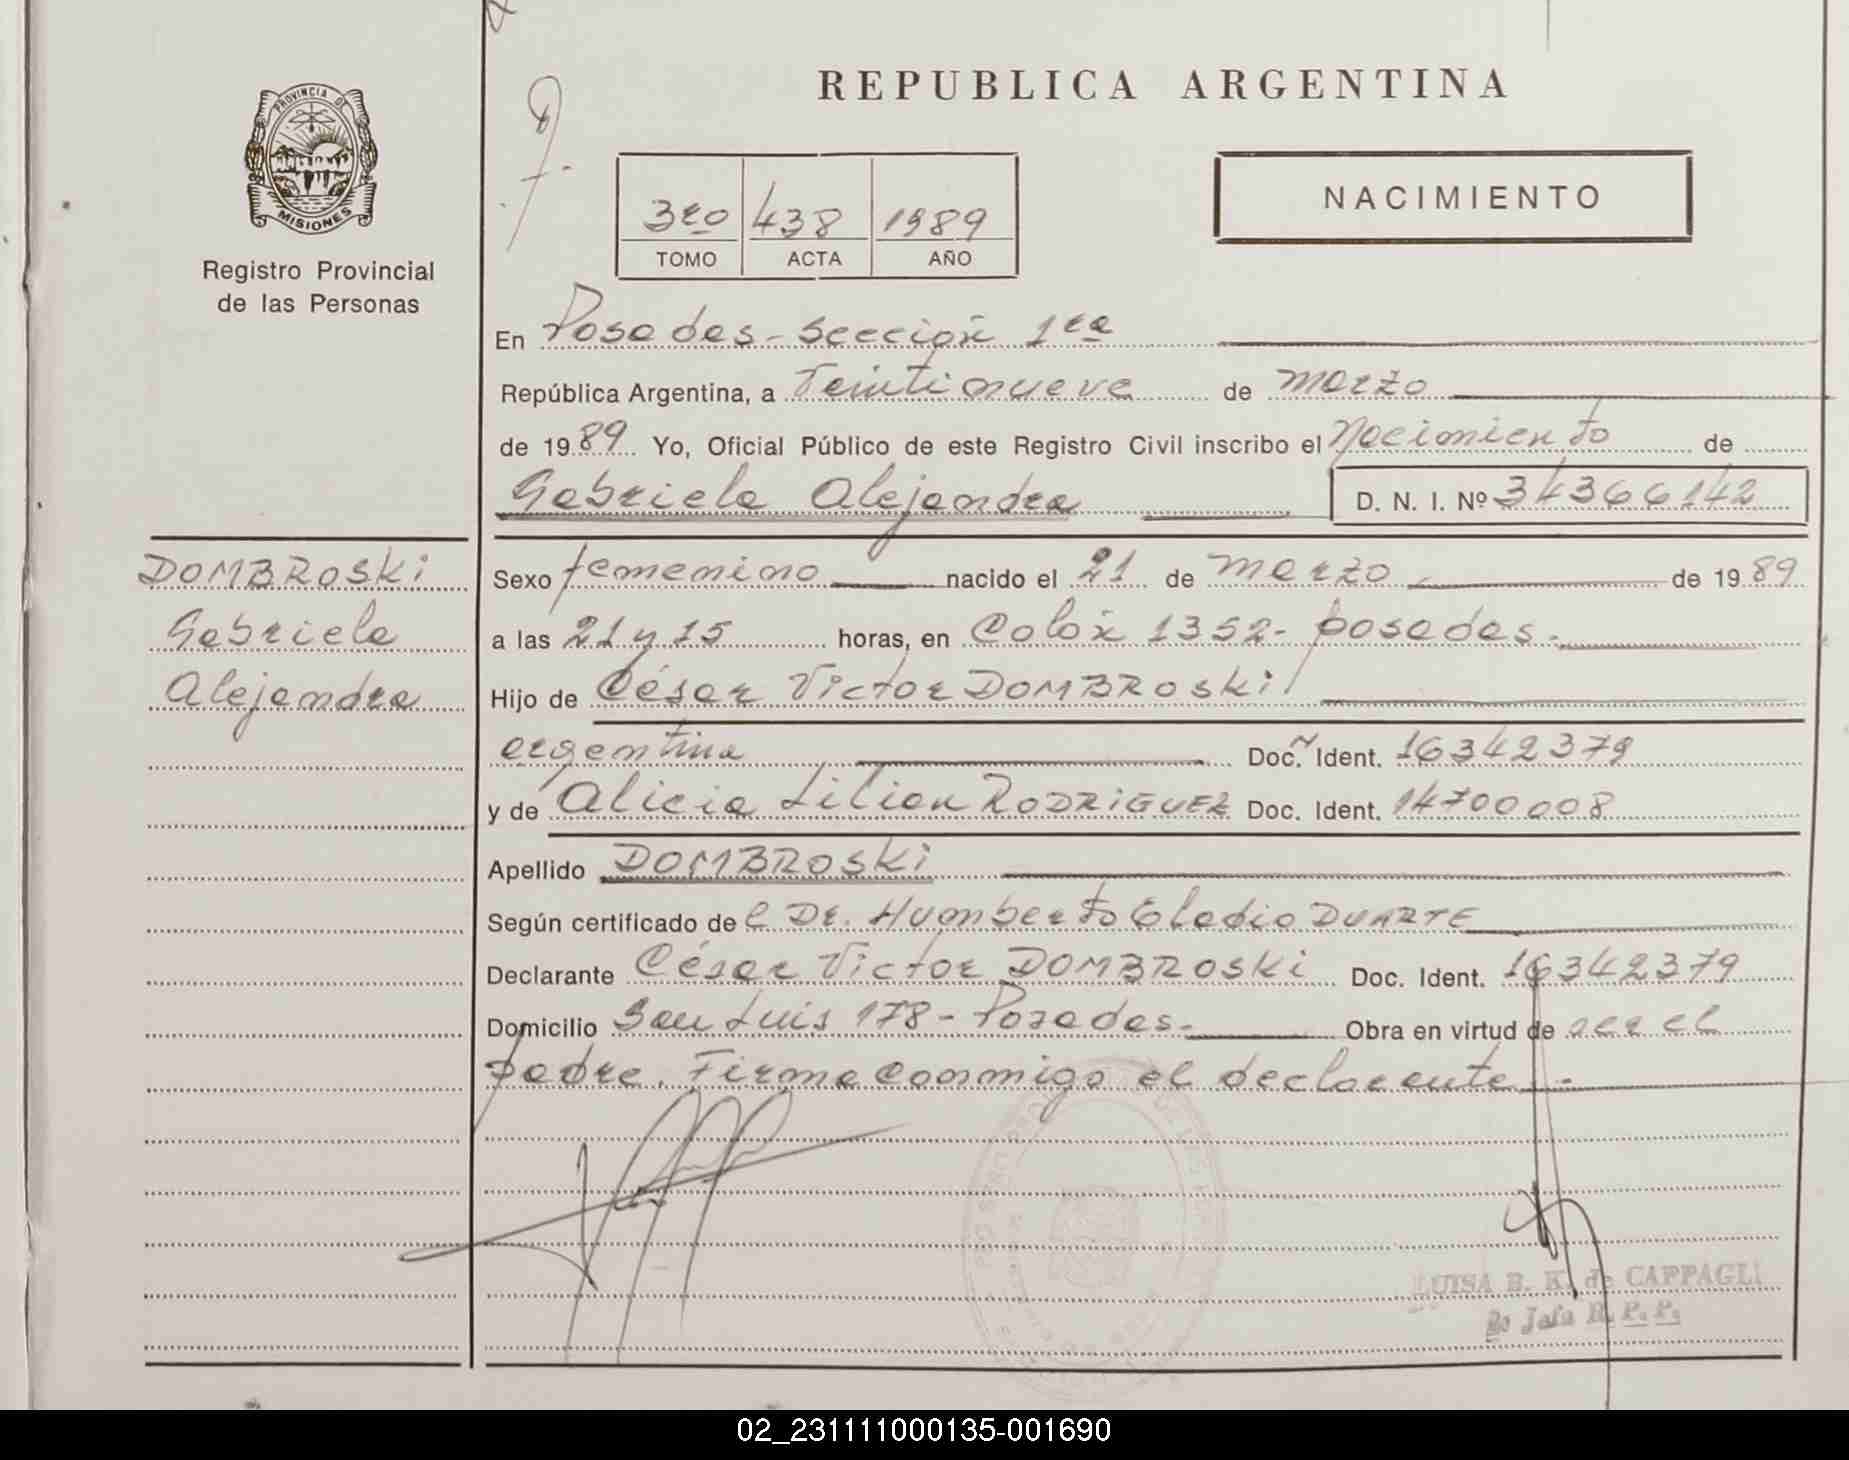 PROVINCIA DE
MISIONES
Registro Provincial
de las Personas
DOMBROSKi
Gabriela
Alejandra
REPUBLICA ARGENTINA
3ro 438 1989
TOMO ACTA AÑO
NACIMIENTO
En Posadas - Sección 1ra
República Argentina, a Veintinueve de marzo
de 1989 Yo, Oficial Público de este Registro Civil inscribo el Nacimiento de
Gabriela Alejandra D. N. I. Nº 34366142
Sexo femenino nacido el 21 de marzo de 1989
a las 21 y 15 horas, en Colón 1352 - posadas.
Hijo de César Victor DOMBROSKi
argentina Doc. Ident. 16342379
y de Alicia Lilian RODRiGUEZ Doc. Ident. 14700008
Apellido DOMBROSKi
Según certificado de l Dr. Humberto Eladio DUARTE
Declarante César Victor DOMBROSKi Doc. Ident. 16342379
Domicilio San Luis 178 - Posadas. Obra en virtud de ser el
padre. Firma conmigo el declarante.-
LUISA B. K. de CAPPAGLI
2o Jefa R. P. P.
02_231111000135-001690